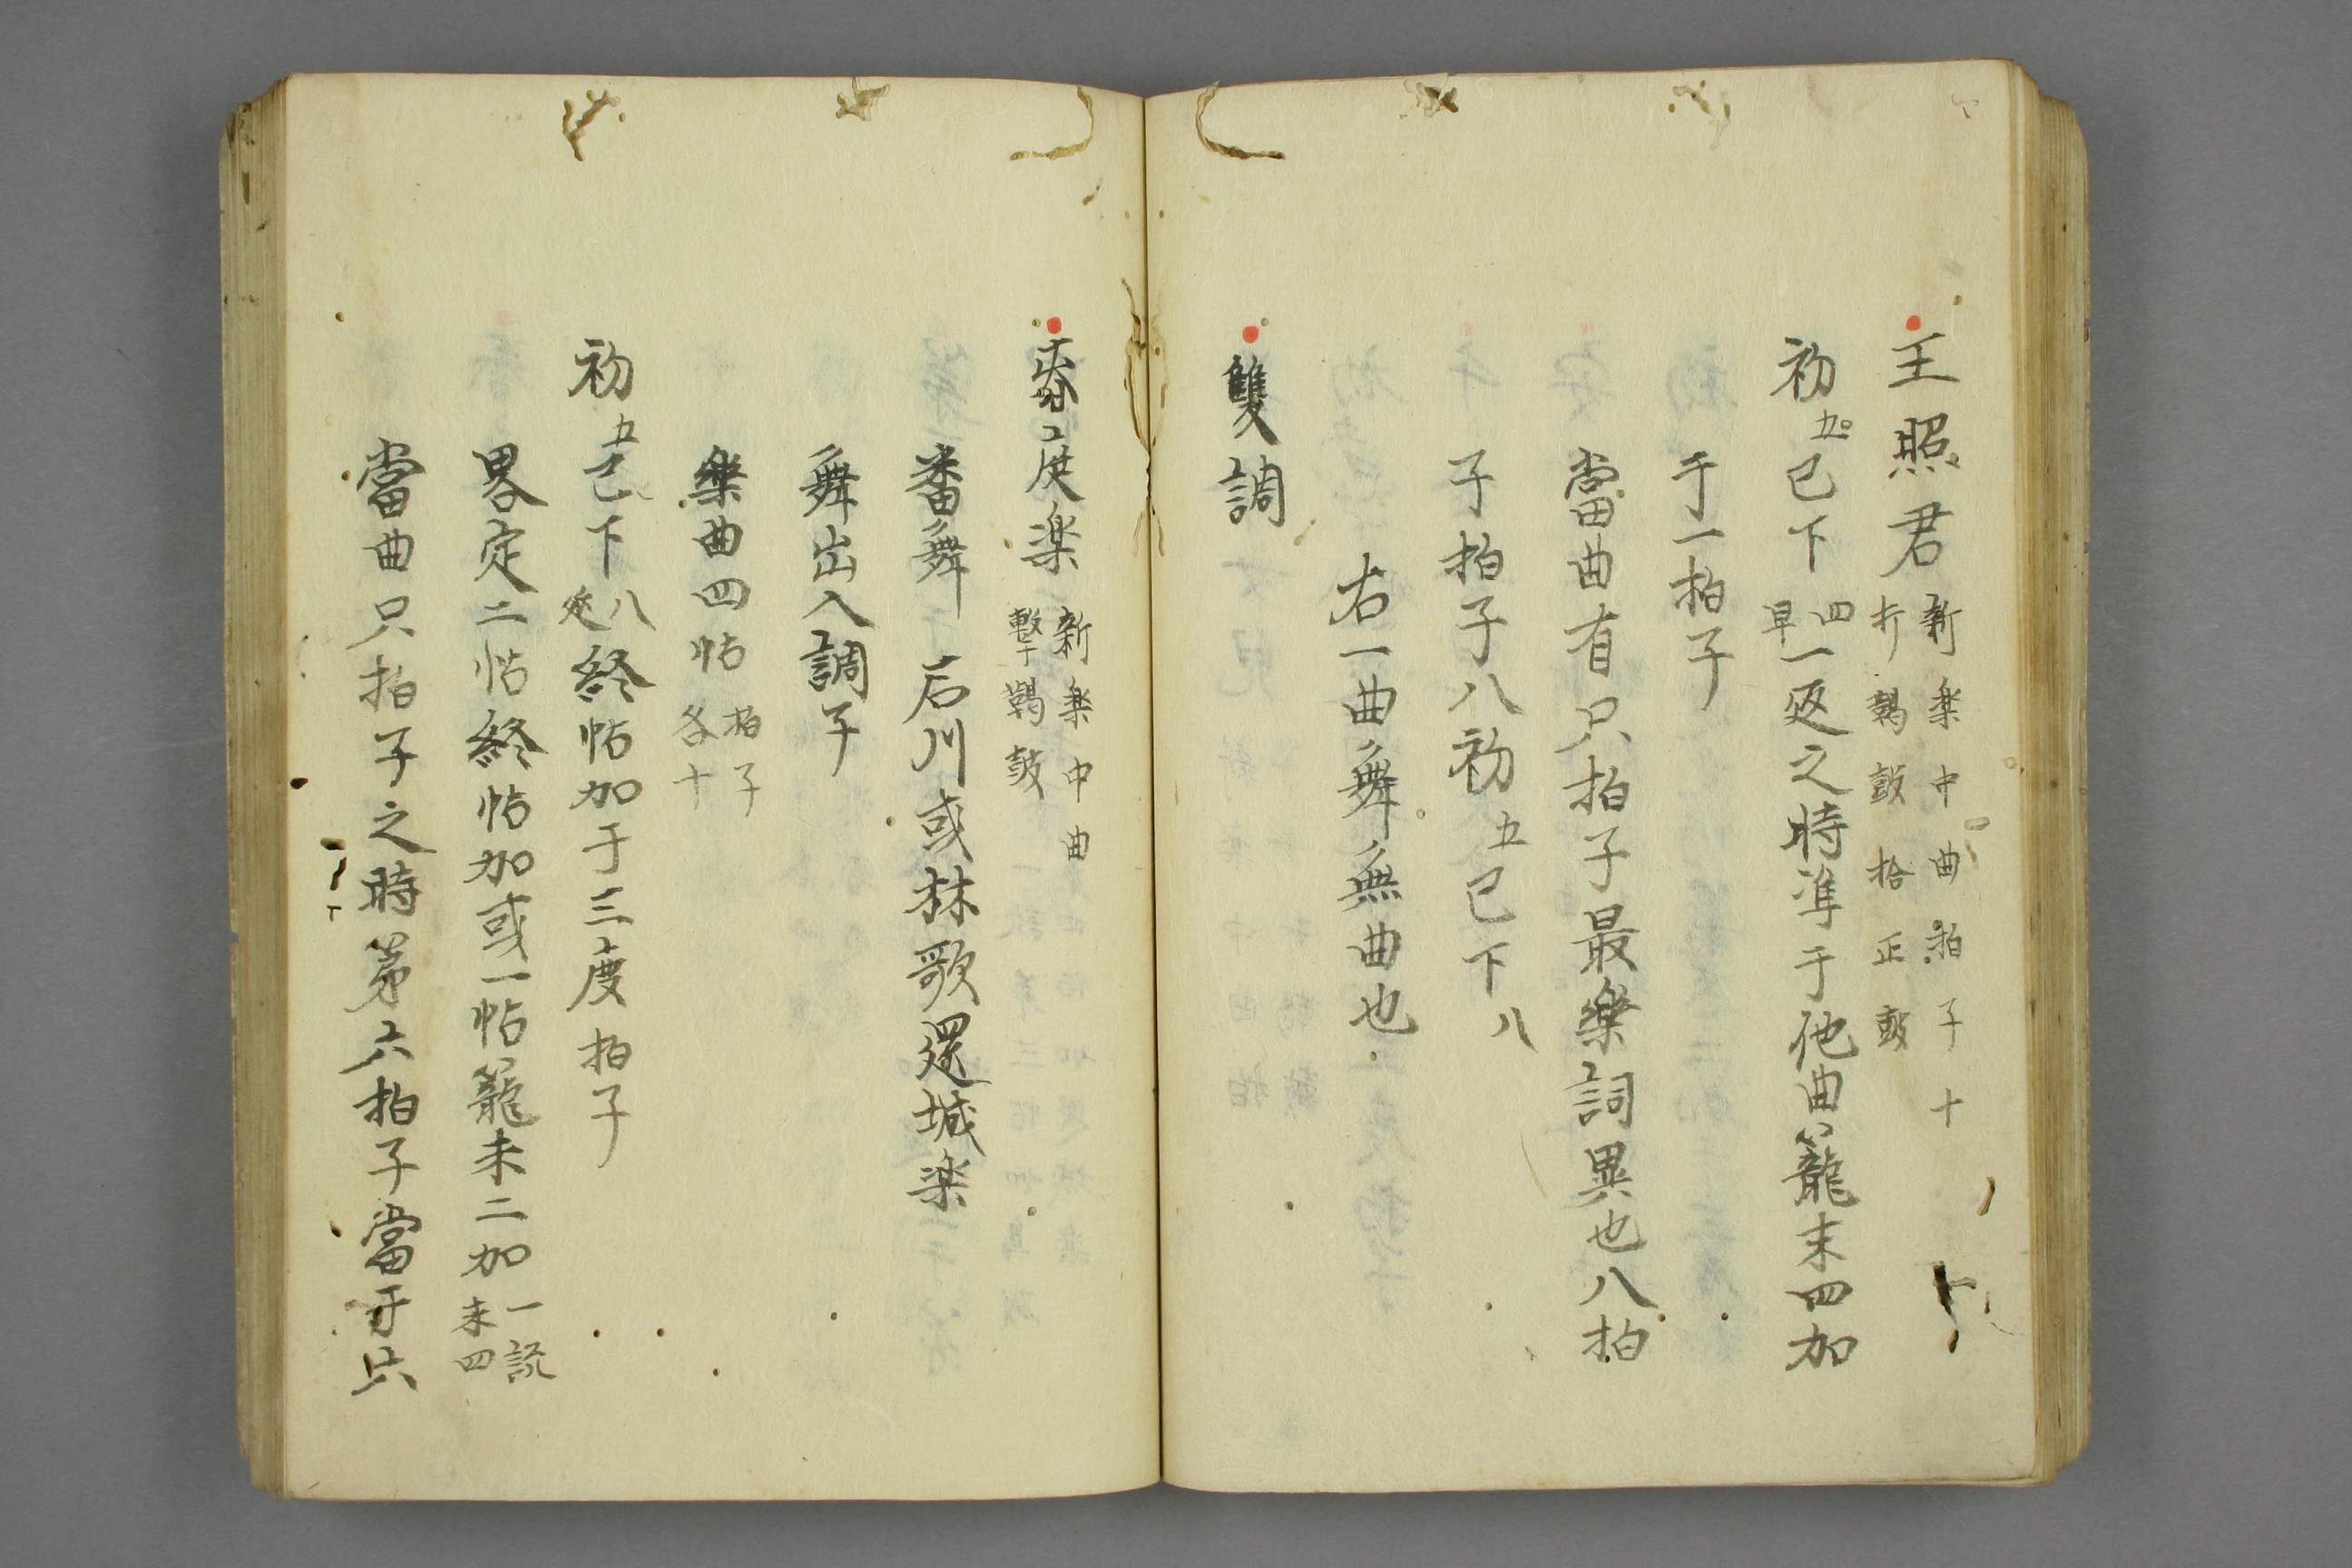 王照君 新楽中曲拍子十
打鞨鼓拾正鼓
初五已下四早一返之時準于他曲籠末四加
于一拍子
當曲有只拍子最樂詞異也八拍
子拍子八初五已下八
右一曲舞無曲也
雙調
春庭楽 新楽中曲
撃鞨鼓
番舞 石川或林歌還城楽
舞出入調子
樂曲四帖 拍子各十
初五已下八返終帖加于三度拍子
畧定二帖終帖加或一帖籠末二加 一説末四
當曲只拍子之時第六拍子當于只